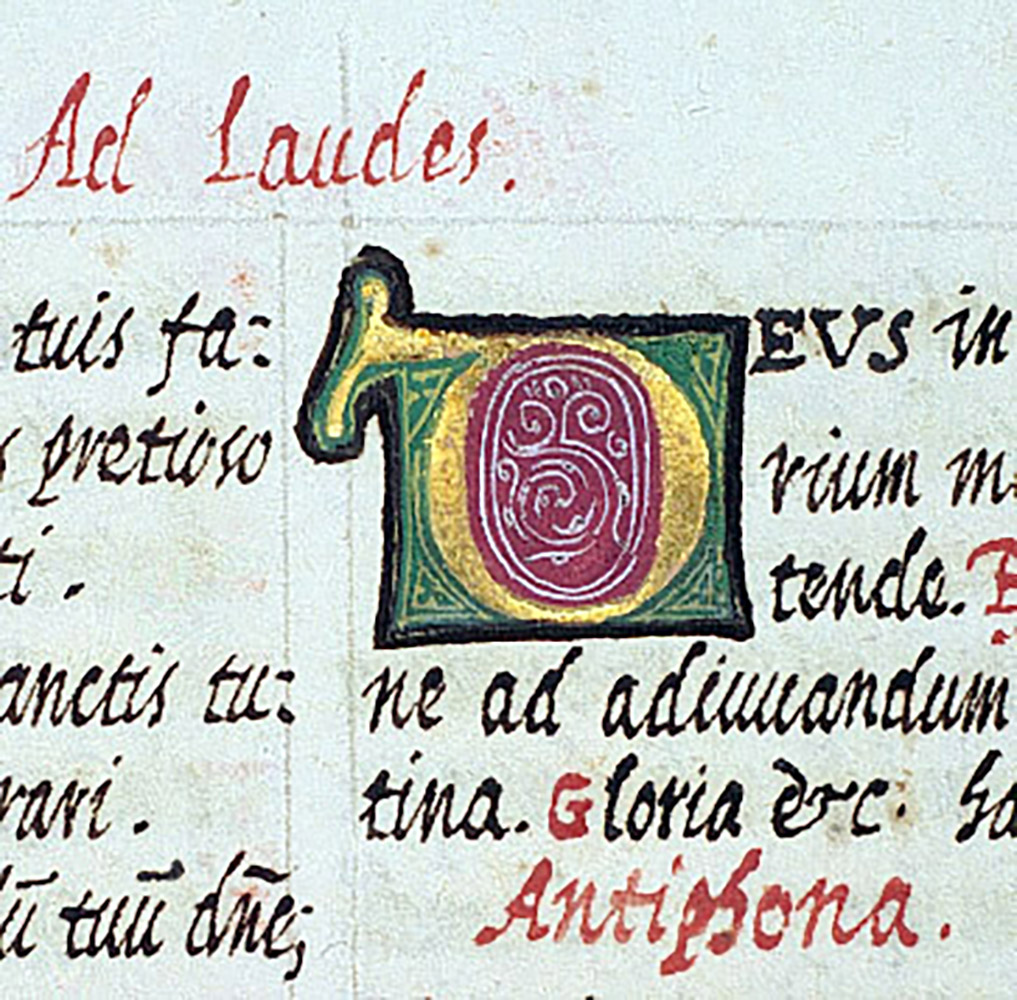 Ad Laudes.
tuis fa:
pretioso
ti.
anctis tu:
rari.
tuū dn̄e;
DEVS in
rium m
tende.
ne ad adiuuandum
tina. Gloria &c.
Antiphona.